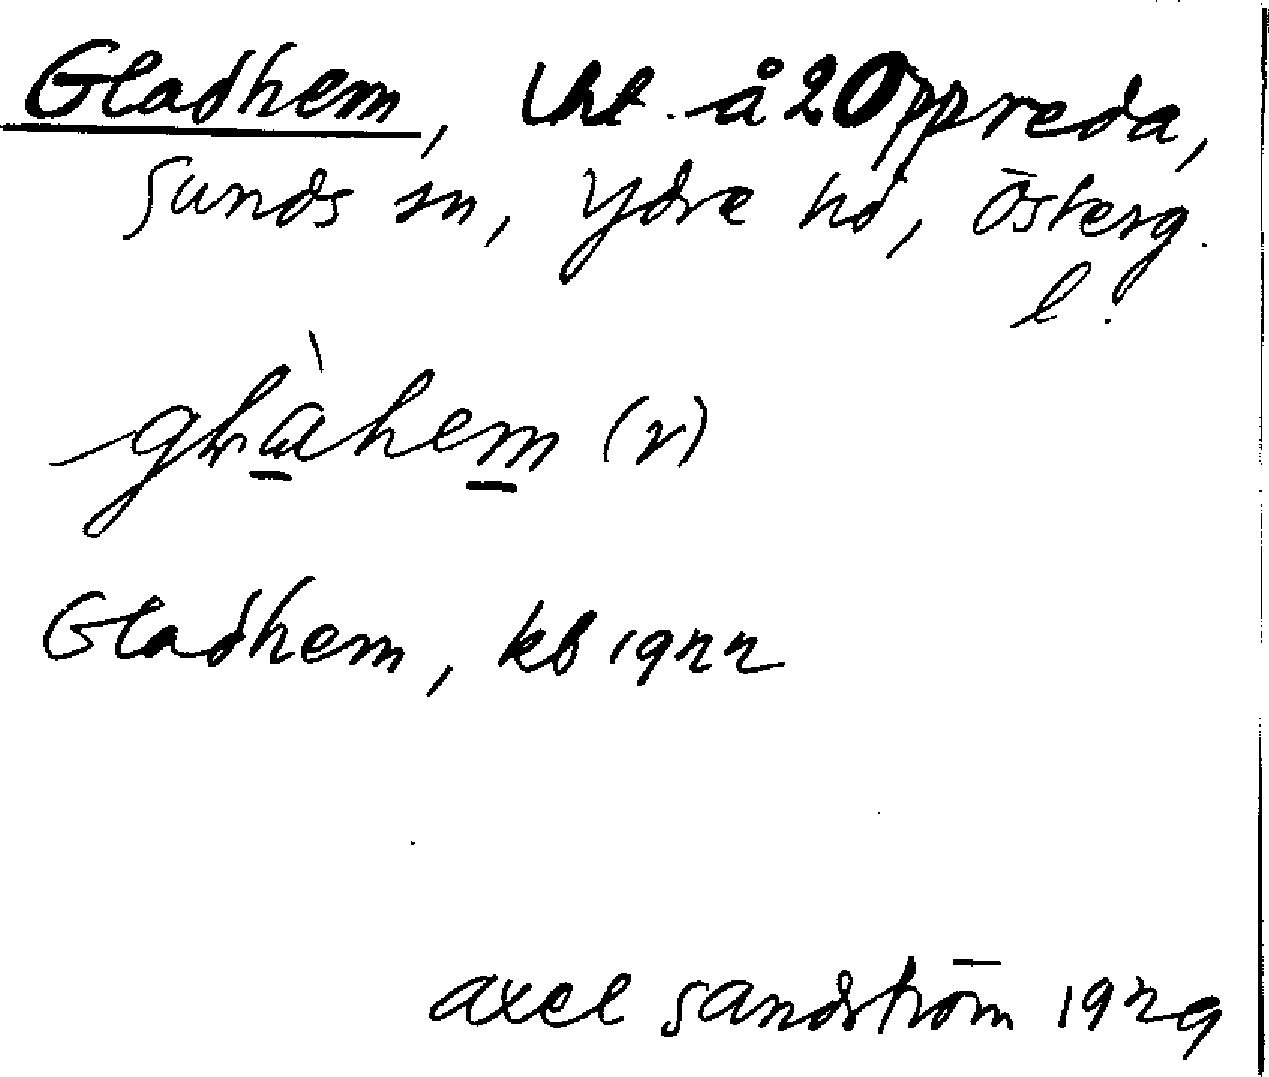 Gladhem, lht. å 2 Oppreda,
Sunds sn, Ydre hd, Österg.
l.
glàhem (r)
Gladhem, kb 1922
Axel Sandström 1929